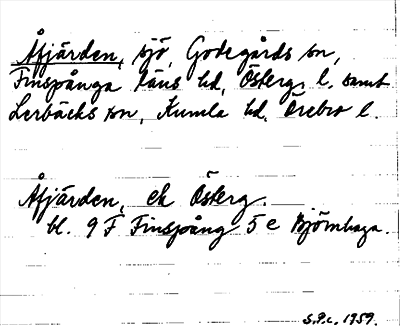 Åfjärden, sjö, Godegårds sn,
Finspånga läns hd, Österg. l. samt
Lerbäcks sn, Kumla hd, Örebro l.
Åfjärden, ek Österg.
bl. 9 F Finspång 5 e Björnhaga.
S.P.c. 1959.